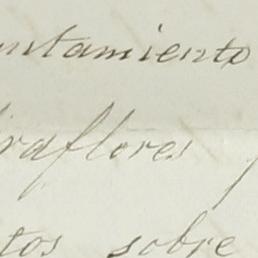 untamiento
iraflores
tos sobre